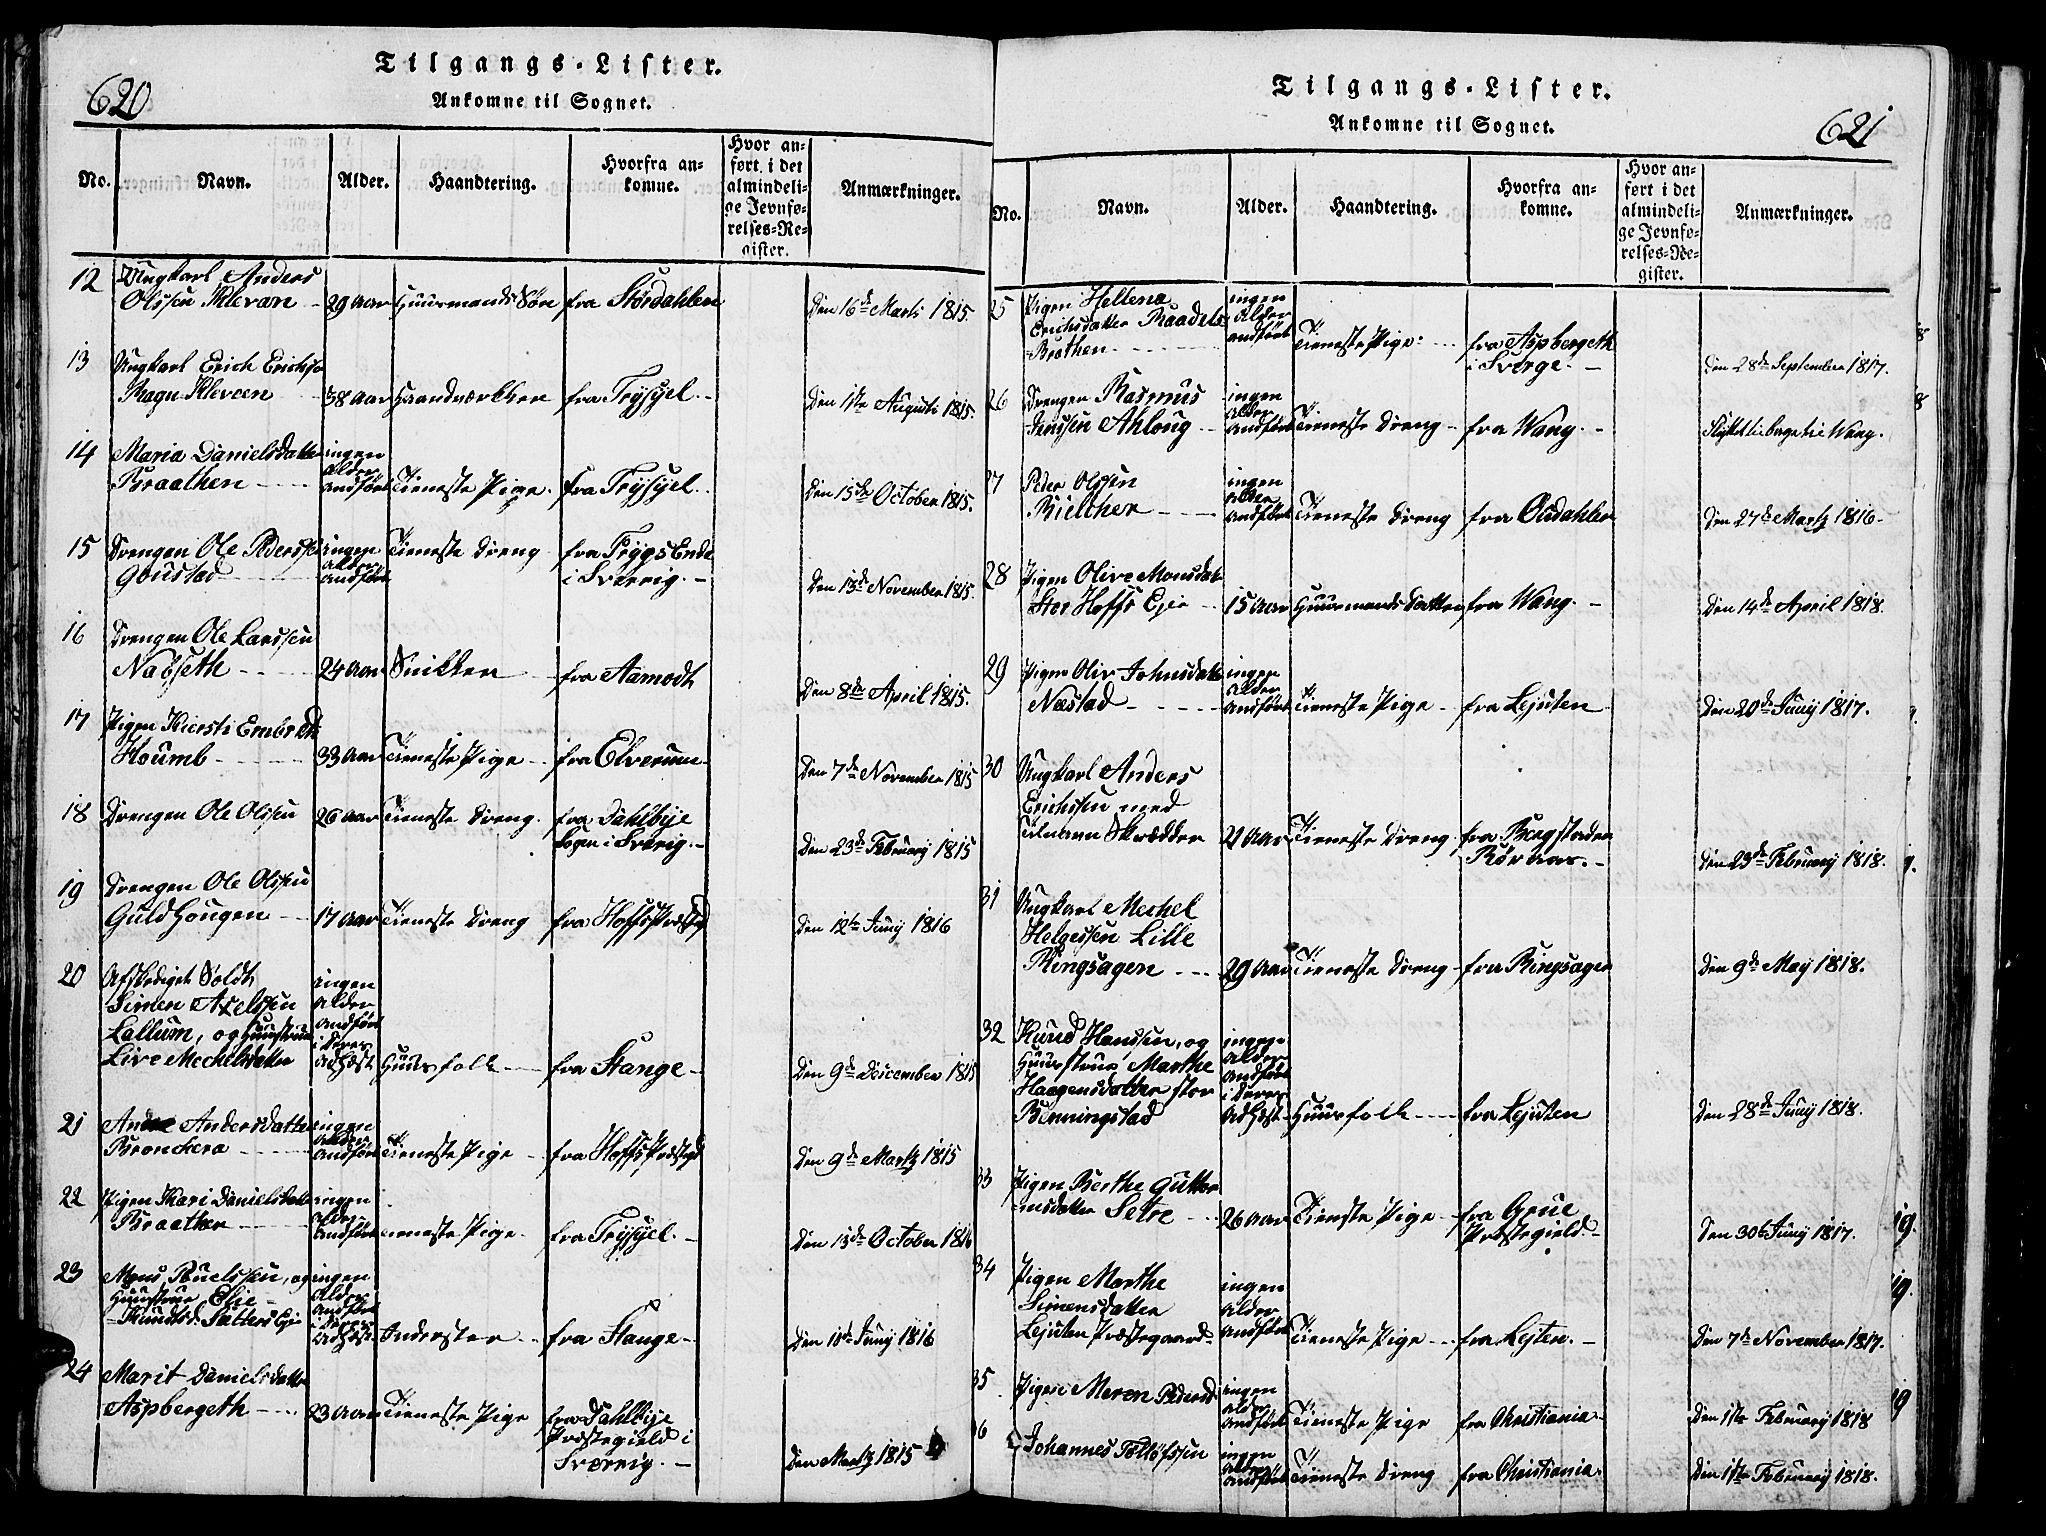 620
Tilgangs-Lister.
Ankomne til Sognet.
No. Navn. Alder. Haandtering. Hvorfra ankomne. Hvor anført i det almindelige Jevnførelses-Register. Anmærkninger.
12 Ungkarl Anders
Olssen Klevan 29 Aar Huusmands Søn fra Størdahlen Den 16de Marti 1815.
13 Ungkarl Erich Erichsø
Bagu Kleveen 38 Aar Haandværkker fra Trysyel Den 1ste Augusti 1815.
14 Maria Danielsdatter ingen
Alder
Braathen andført Tieneste Pige fra Trysyel Den 15de October 1815.
15 Drengen Ole Pederssen ingen Tieneste Dreng fra Frygs Ende
Goustad Alder andført i Sverrig Den 13de November 1815.
16 Drengen Ole Larssen
Nabseth 24 Aar Snikker fra Aamodt Den 8de April 1815.
17 Pigen Kiersti Embret
Houmb 33 Aar Tieneste Pige fra Elverum Den 7de November 1815
18 Drengen Ole Olssen 26 Aar Tieneste Dreng fra Dahlbye
Sogen i Sverig Den 23de February 1815
19 Drengen Ole Olssen
Guldhougen 17 Aar Tieneste Dreng fra Hoffs Præstegd Den 12te Juny 1816
20 Afskediget Soldt ingen
Simen Axelssen Alder
Lallum, og Huustrue andført
i deres
Live Mechelsdatter Adhest Huusfolk fra Stange Den 9de December 1815
21 Andersdatter ingen
Alder
Bronckera andført Tieneste Pige fra Hoffs Præstegd Den 9de Martz 1815
22 Pigen Kari Danielsdatter ingen
Alder
Braathen andført Tieneste Pige fra Trysyel Den 13de October 1816
23 Mons Ruelssen, og ingen
Huustrue Elie Alder
andført
Knuds D. Sætters Eje i deres
Adhest Inderster fra Stange Den 10de Juny 1816
24 Marit Danielsdatter
Aspbergeth 23 Aar Tieneste Pige fra Dahlbye
Præstegield i
Sverrig Den Martz 1815
621
Tilgangs-Lister.
Ankomne til Sognet.
No. Navn. Alder. Haandtering. Hvorfra ankomne. Hvor anført i det almindelige Jevnførelses-Register. Anmærkninger.
25 Pigen Hellena ingen
Erichsdatter Raadels Alder
andført
Brathen Tieneste Pige fra Aspbergeth
i Sverge Den 28de September 1817.
26 Drengen Rasmus ingen
Alder
Jenssen Ahloug andført Tieneste Dreng fra Wang Flyttet tilbage til Wang.
27 Peder Olssen ingen
Alder
Bielcher andført Tieneste Dreng fra Ousdahlen Den 27de Martz 1816
28 Pigen Olive Monsdat
Stor Hoffs Eje 15 Aar Huusmands datter fra Wang Den 14de April 1818.
29 Pigen Oliv Johnsdatter ingen
Alder
Næstad andført Tieneste Pige fra Lejuten Den 20de Juny 1817.
30 Ungkarl Anders
Erichssen med
Tilnavn Skrædder 21 Aar Tieneste Dreng fra Bergstaden
Røraas Den 23de February 1818.
31 Ungkarl Mechel
Helgessen Lille
Ringsagen 29 Aar Tieneste Dreng fra Ringsager Den 9de May 1818.
32 Knud Hanssen, og ingen
Huustrue Marthe Alder
andført
Haagensdatter stor i deres
Benningstad Adhest Huusfolk fra Lejuten Den 28de Juny 1818.
33 Pigen Berthe Gutter
msdatter Setre 26 Aar Tieneste Pige fra Grue
Præstegield Den 30te Juny 1817.
34 Pigen Marthe ingen
Simensdatter Alder
Lejuten Præstegaard andført Tieneste Pige fra Lejten Den 7de November 1817.
35 Pigen Meren Pedersd ingen
Alder
andført Tieneste Pige fra Christiania Den 1ste February 1818
36 Johannes Tolløfssen ingen
Alder
andført Tieneste Dreng fra Christiania Den 1ste February 1818.